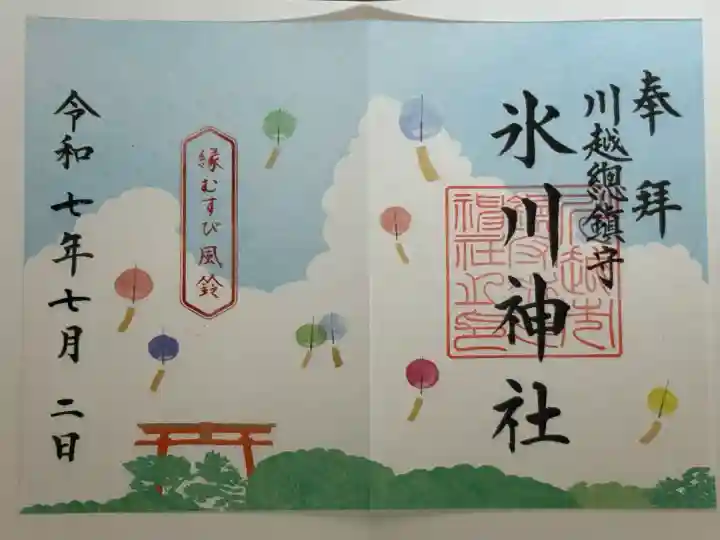 奉拝
川越總鎮守
氷川神社
縁むすび風鈴
令和七年七月二日